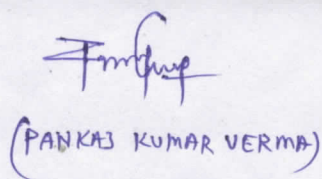 (PANKAJ KUMAR VERMA)